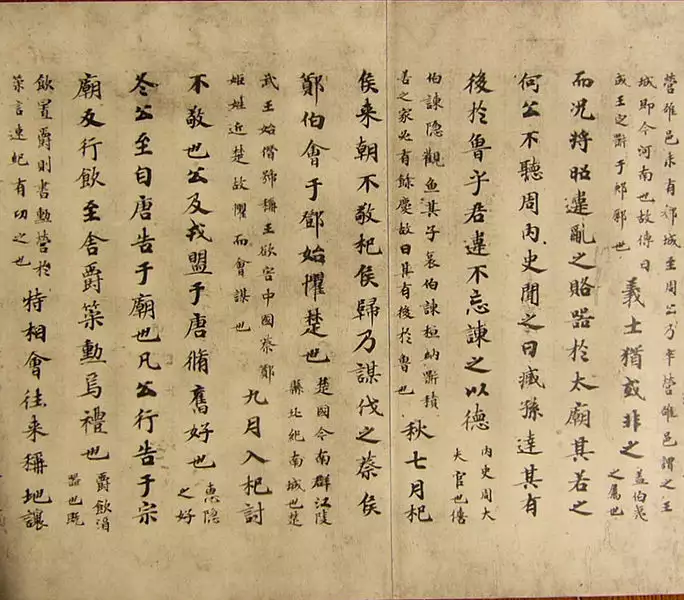 營雒邑未有郛城至周公乃卒營雒邑謂之王
城即今河南也故傳曰
成王定鼎于郟鄏也
義士猶或非之
蓋伯夷
之屬也
而况将昭違亂之賂器於太廟其若之
何公不聽周内史聞之曰臧孫達其有
後於魯乎君違不忘諫之以德
内史周大
夫官也僖
伯諫隠觀魚其子哀伯諫桓納鼎積
善之家必有餘慶故曰其有後於魯也
秋七月杞
侯来朝不敬杞侯歸乃謀伐之蔡侯
鄭伯會于鄧始懼楚也
楚國今南郡江陵
縣北紀南城也楚
武王始僭號稱王欲害中國蔡鄭
姬姓近楚故懼而會謀也
九月入杞討
不敬也公及戎盟于唐脩舊好也
惠隠
之好
冬公至自唐告于廟也凡公行告于宗
廟反行飲至舍爵策勳焉禮也
爵飲酒
器也既
飲置爵則書勳勞於
策言速紀有功之也
特相會往来稱地讓